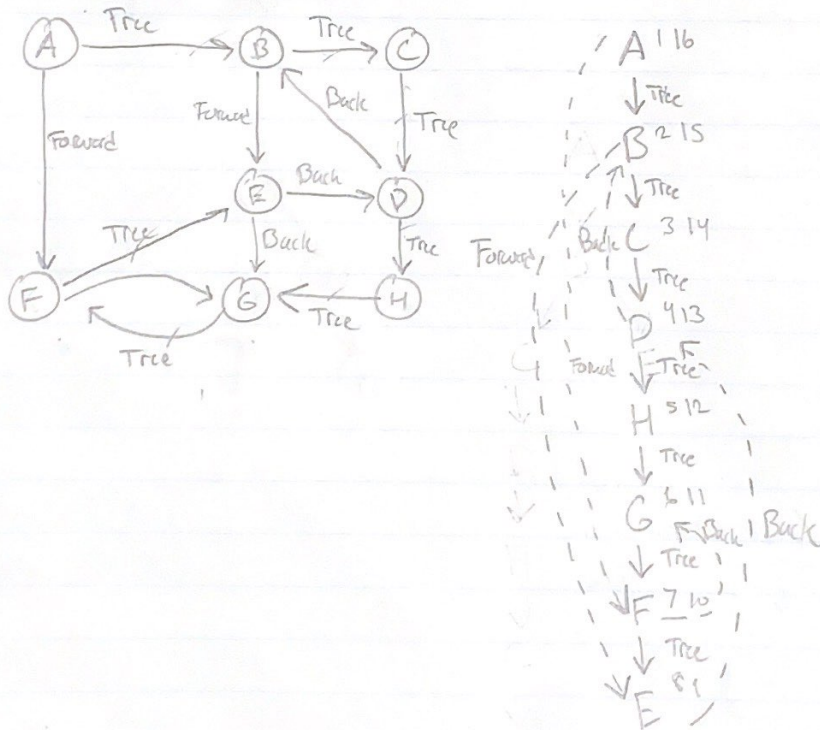 A Tree B Tree C
Forward Forward Back Tree
E Back D
Tree Back Tree
F G Tree H
Tree
A 1 16
Tree
B 2 15
Tree
Forward Back C 3 14
Tree
D 4 13
Forward Tree
H 5 12
Tree
G 6 11
Back Back
Tree
F 7 10
Tree
E 8 9